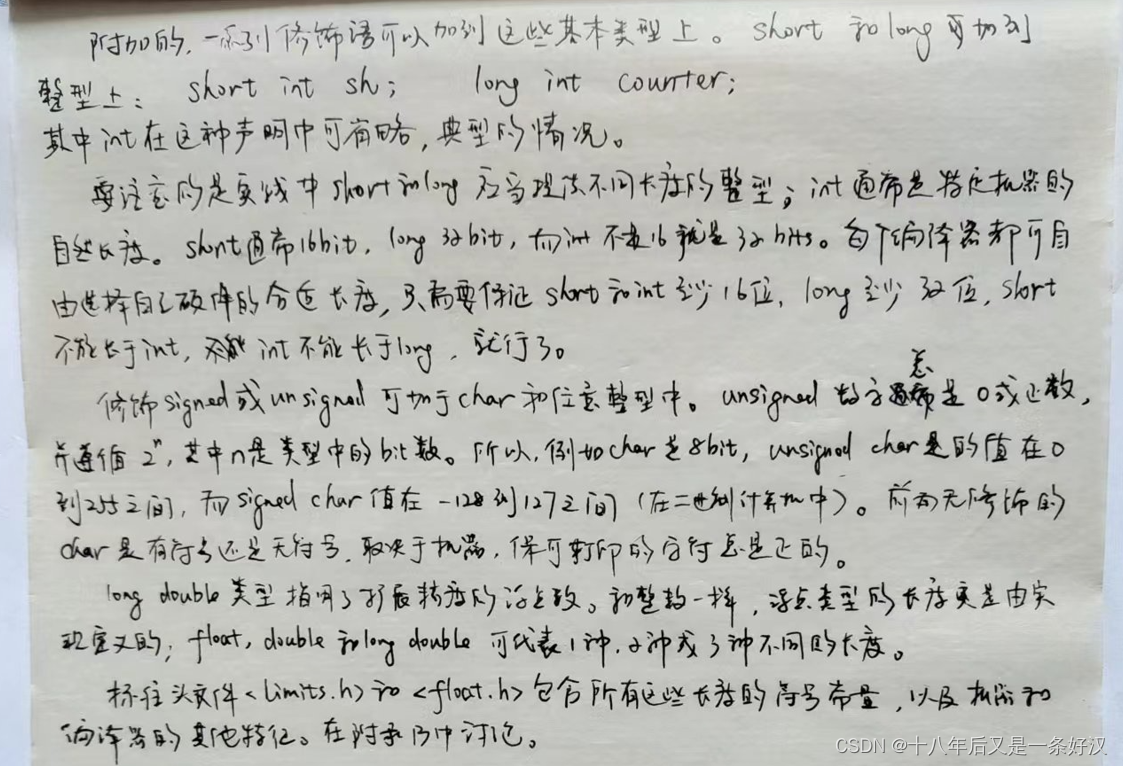 附加的,一系列修饰语可以加到这些基本类型上。 short 和 long 可加到
整型上: short int sh; long int counter;
其中int在这种声明中可省略,典型的情况。
要注意的是实践中short和long 应当提供不同长度的整型;int通常是特定机器的
自然长度。short通常16bit, long 32bit,而int 不是16就是32 bits。每个编译器都可自
由选择自己硬件的合适长度,只需要保证 short 和int至少16位, long至少32位, short
不能长于int, int不能长于long,就行了。
修饰signed或unsigned 可加于char 和任意整型中。 unsigned 数字总是0或正数,
并遵循 2ⁿ,其中n是类型中的bit数。所以,例如char是8bit, unsigned char是的值在0
到255之间,而signed char 值在 -128到127之间(在二进制计算机中)。 无修饰的
char 是有符号还是无符号,取决于机器,但可打印的字符总是正的。
long double类型指明了扩展精度的浮点数。和整数一样,浮点类型的长度更是由实
现定义的; float, double 和long double 可代表1种,2种或3种不同的长度。
标准头文件<limits.h>和<float.h>包含所有这些长度的符号常量,以及机器和
编译器的其他特征。在附录B中讨论。
CSDN @十八年后又是一条好汉